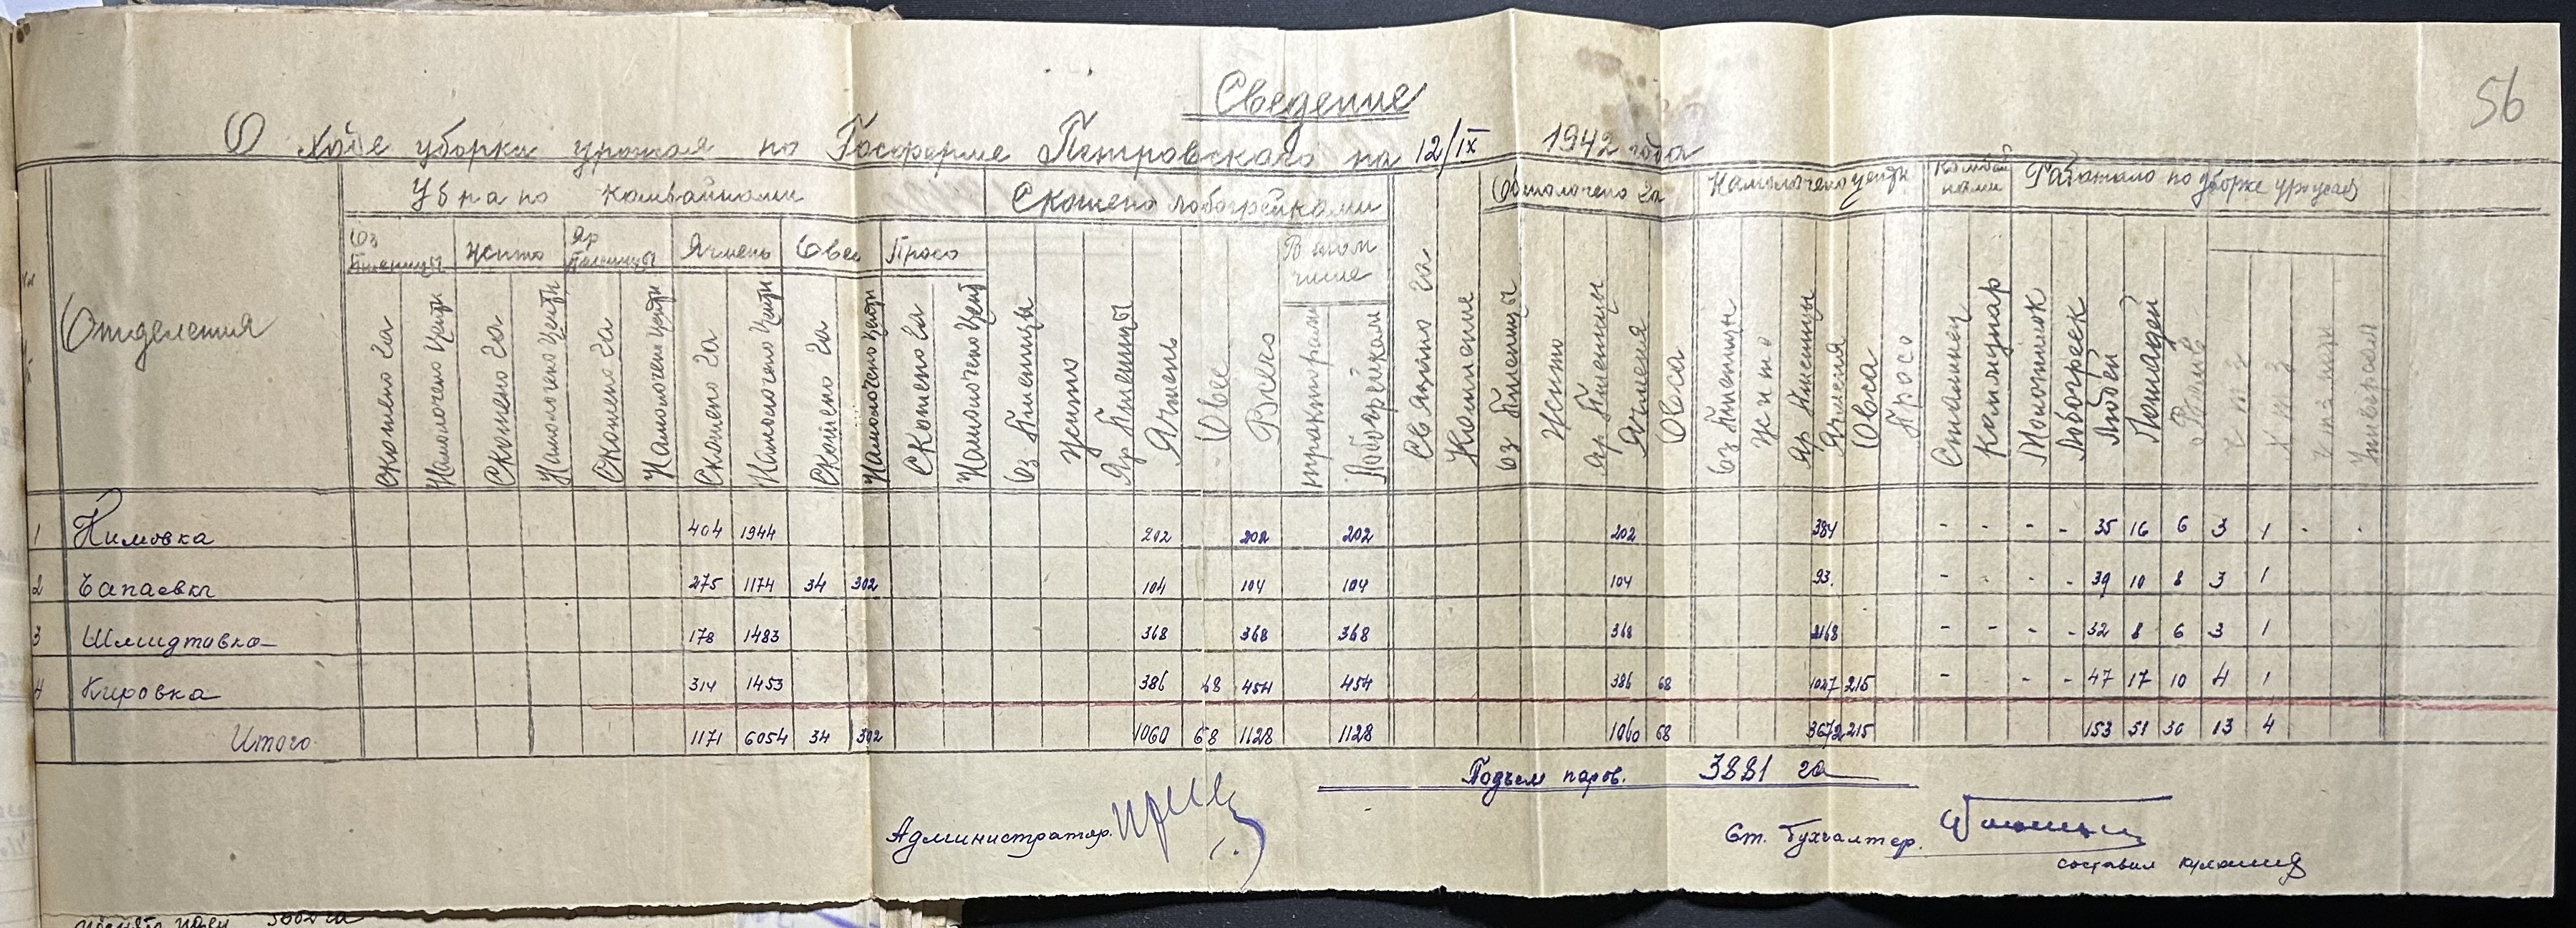 56
Сведение
О ходе уборки урожая по Госферме Петровского на 12/IX 1942 года
Отделения
Убрано комбайнами
Скошено лобогрейками
Обмолочено га
Намолочено центн
Комбай нами
Работало по уборке урожая
Оз Пшеницы
Жито
Яр Пшеницы
Ячмень
Овес
Просо
В том числе
Скошено га
Намолочено центн
Скошено га
Намолочено центн
Скошено га
Намолочено центн
Скошено га
Намолочено центн
Скошено га
Намолочено центн
Скошено га
Намолочено цент
Оз. Пшеницы
Жито
Яр Пшеницы
Ячмень
Овес
Всего
Лобогрейкам
Связано га
Оз Пшеницы
Жито
Яр Пшеницы
Ячменя
Овса
Оз Пшеницы
Жито
Яр Пшеницы
Ячменя
Овса
Просо
Сталинец
Молотилок
Лобогреек
Людей
Лошадей
Волов
Универсал
1 Климовка 404 1944 202 202 202 202 384 - - - - 35 16 6 3 1 - .
2 Чапаевка 275 1174 34 302 104 104 104 104 93. - - - - 39 10 8 3 1
3 Шмидтовка 178 1483 368 368 368 368 2168 - - - - 32 8 6 3 1
4 Кировка 314 1453 386 68 454 454 386 68 1027 215 - - - 47 17 10 4 1
Итого. 1171 6054 34 302 1060 68 1128 1128 1060 68 3672 215 153 51 30 13 4
Подъем паров. 3881 га
Администратор.
Ст. Бухгалтер.
составил